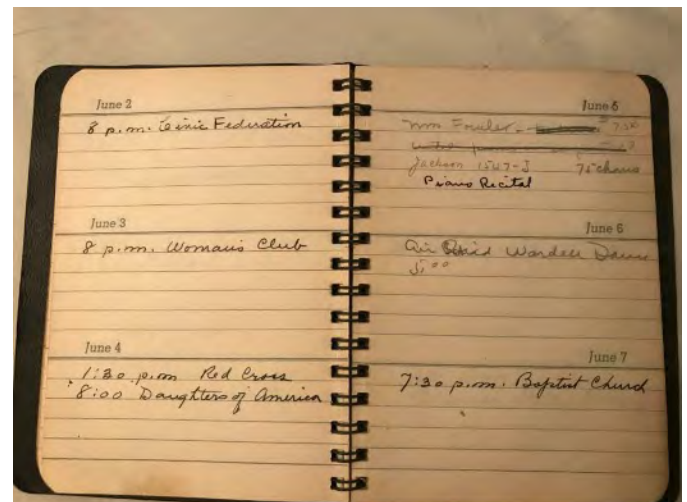 June 2
8 p.m. Civic Federation
June 3
8 p.m. Woman's Club
June 4
1:30 p.m Red Cross
8:00 Daughters of America
June 5
Wm Fowler - 7:30
Jackson 1547-J 75 chairs
Piano Recital
June 6
Air Raid Warden Dance
5.00
June 7
7:30 p.m. Baptist Church